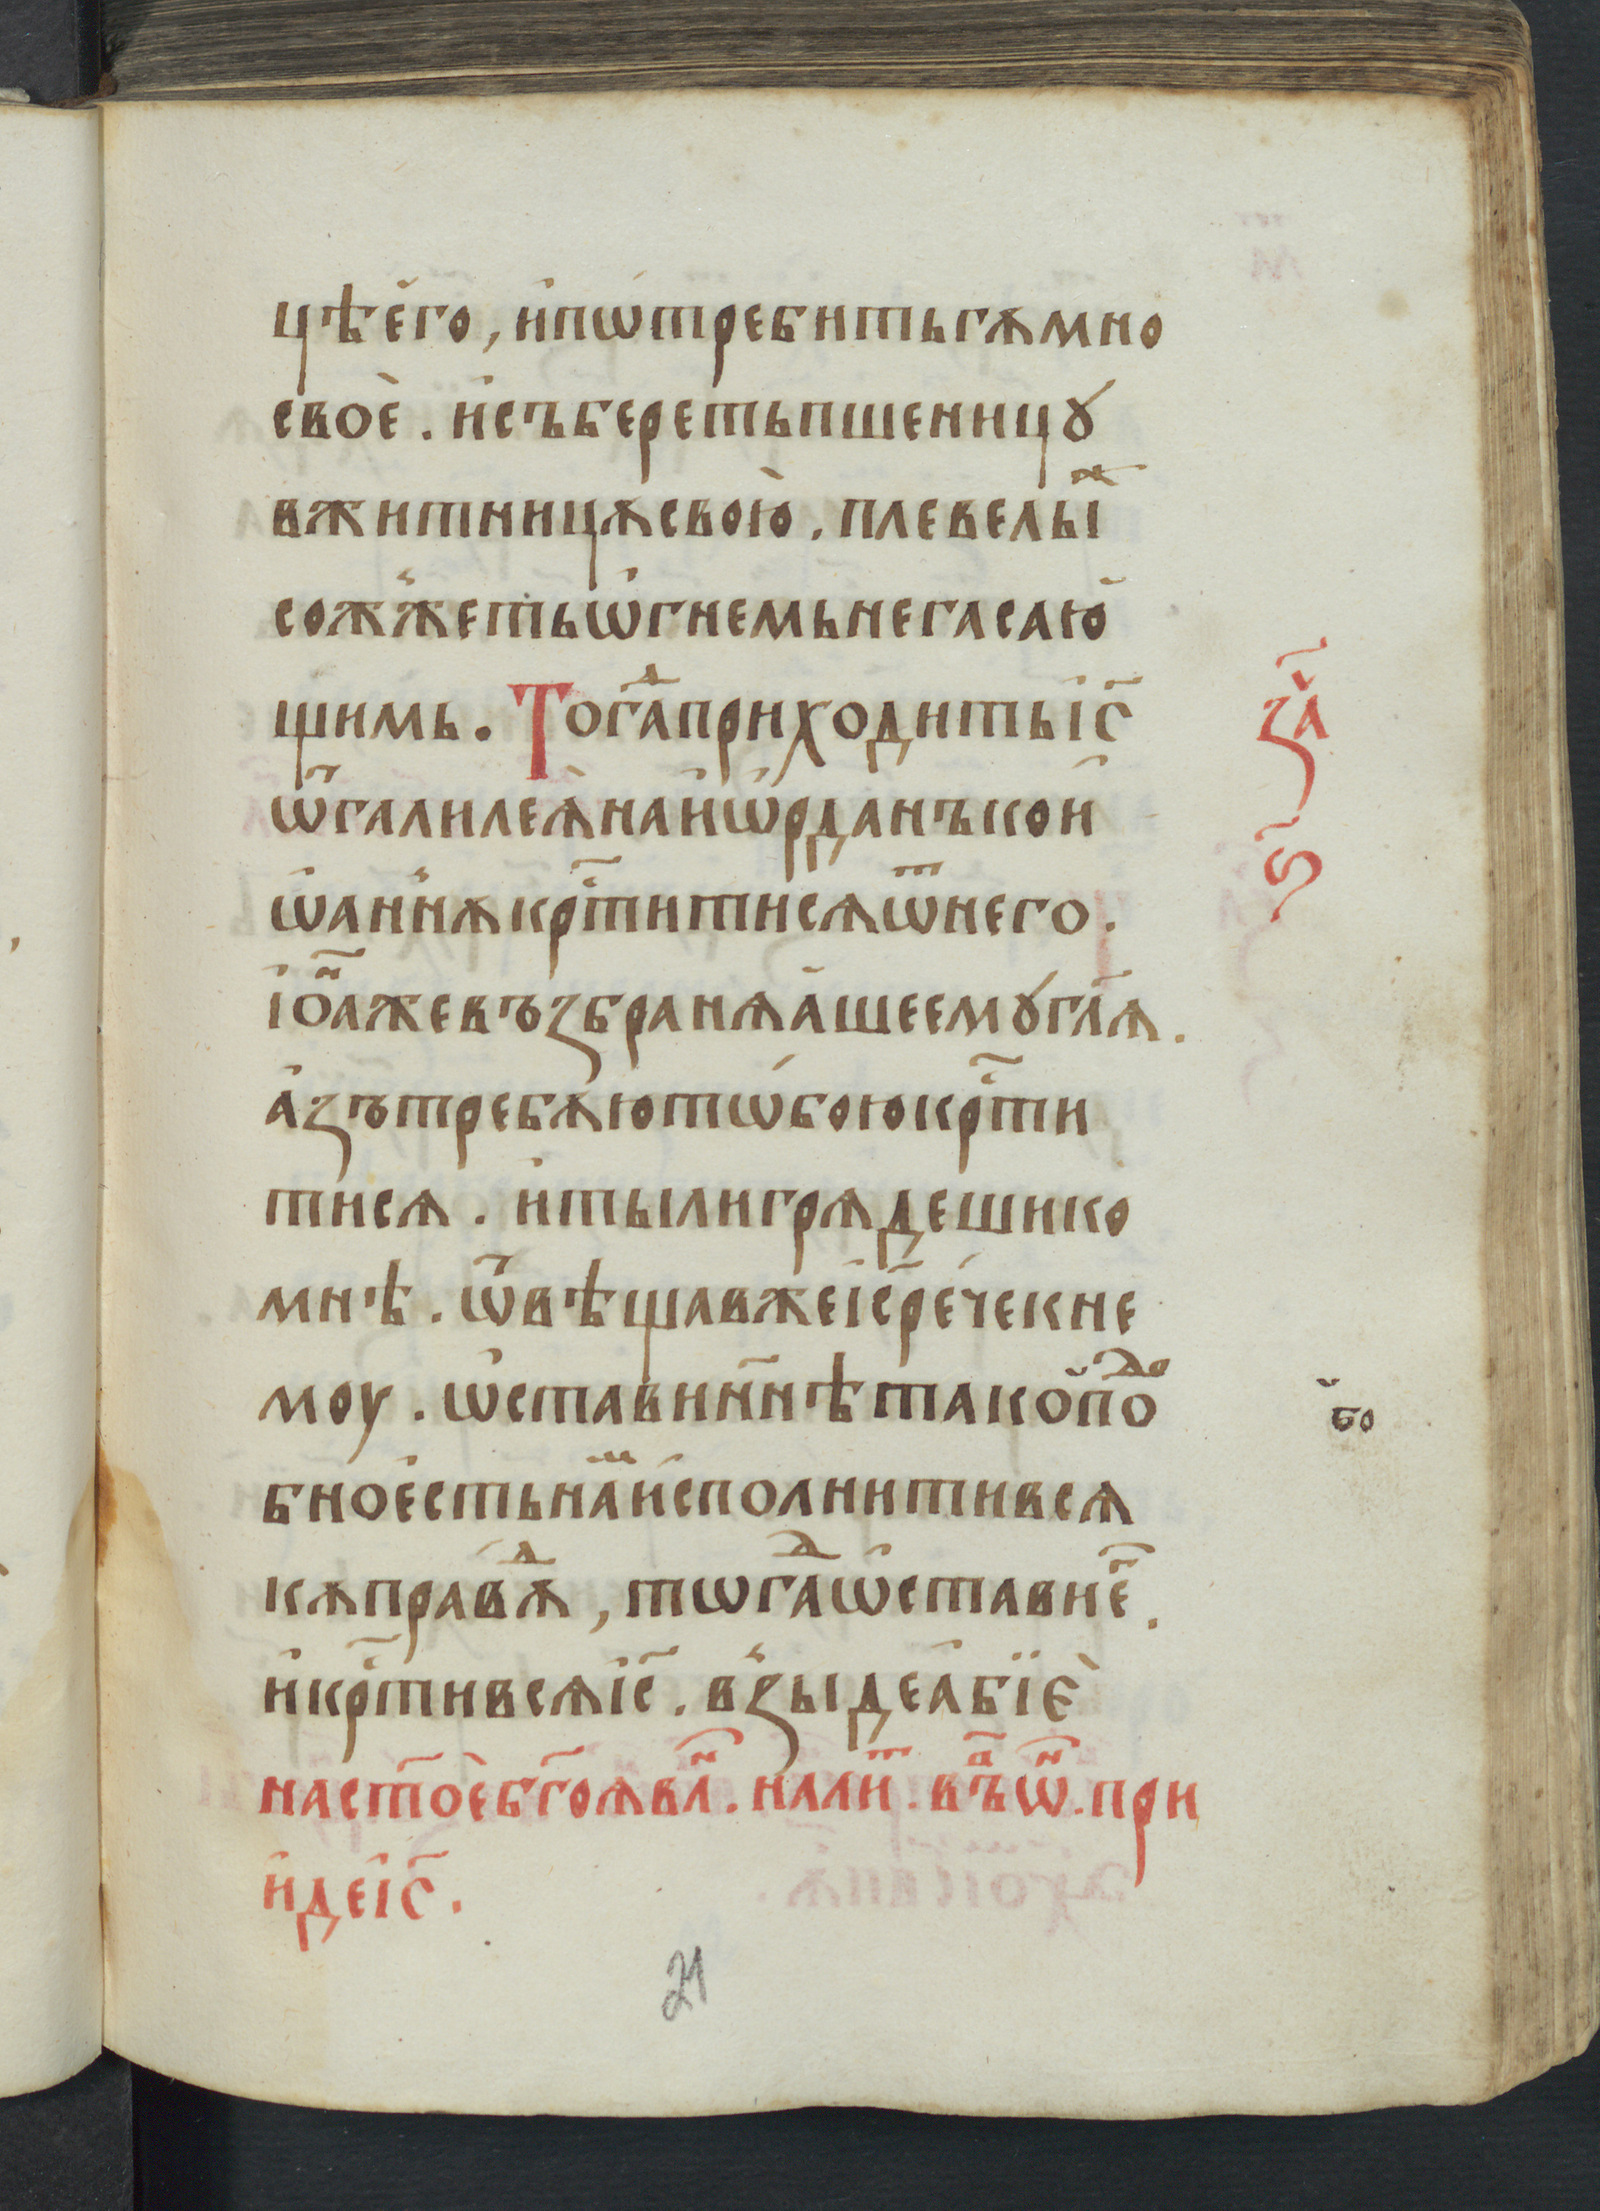 цѣе҆го, и҆пѡтребитьгѧмно
своѐ. и҆съберетьпшеницꙋ
вжитницѧсвою̀. плевелыⷤ
сожжетьѡ҆гнемьнегасаю҆
щимь. Тогаⷣприходитьі҃с
ѿгалилеѧ̀наи҆ѡ҆рданъкои
ѡ҆аннѧкр҃титисѧѿнего.
і҆оⷩ҇ажевъзбранѧа҆шеемꙋгл҃ѧ.
а҆зътребѧютѡбоюкр҃ти
тисѧ. и҆тылигрѧдешико
мнѣ. ѿвѣщавжеі҃сре́чекне
моу. ѡ҆ставин҃нѣтако̆поⷣ҇о
бно́естьнаⷨи҆сполнитивсѧ
кѧправⷣѧ, тѡгаⷣѡ҆ставие҃.
и҆кр҃тивсѧі҃с. взыдеа҆бїѐ
наст҃оѐбг҃оѧвлⷩ҇. налиⷮ. въⷧѡⷩ. при
и҆деі҃с.
за҃
ѕ҃
бо
21